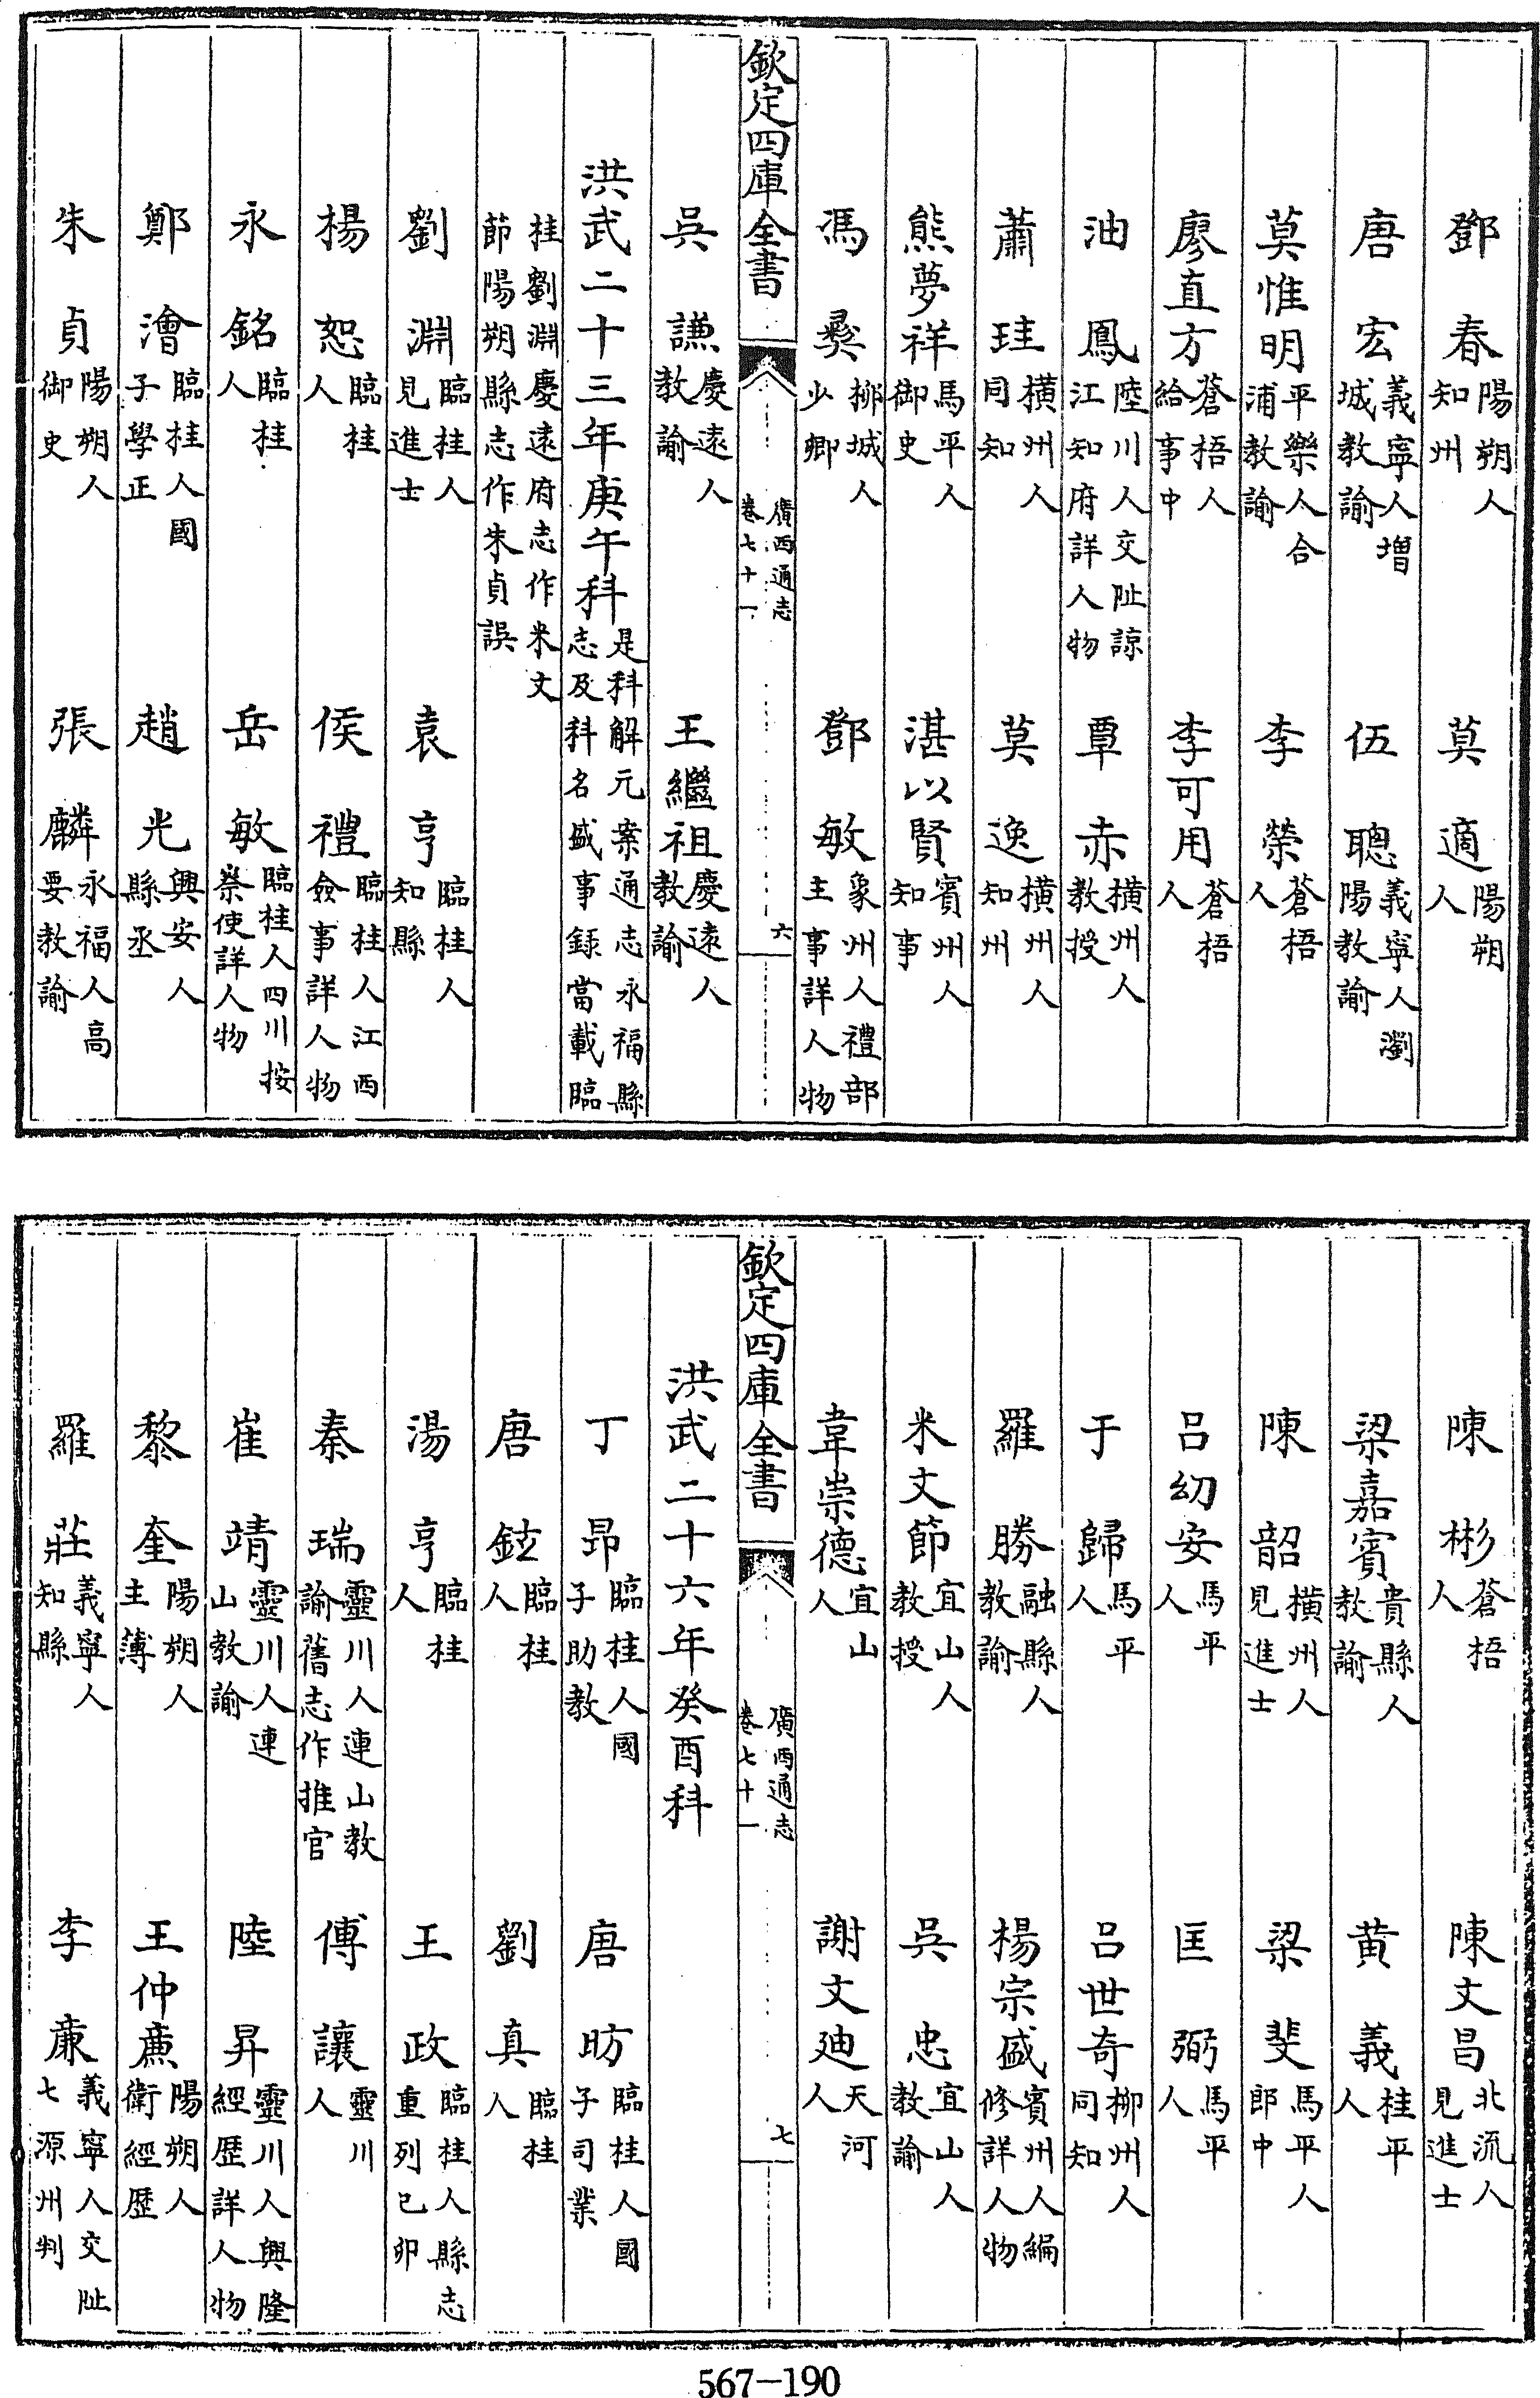 鄧春陽朔人知州　莫適陽朔人
唐宏義寧人增城教諭　伍聰義寧人瀏陽教諭
莫惟明平樂人合浦教諭　李榮蒼梧人
廖直方蒼梧人給事中　李可用蒼梧人
油鳳陸川人交阯諒江知府詳人物　覃赤横州人教授
蕭珪横州人同知　莫逸横州人知州
熊夢祥馬平人御史　湛以賢賓州人知事
馮彜栁城人少卿　鄧敏象州人禮部主事詳人物
欽定四庫全書　廣西通志卷七十一　六
吳謙慶遠人教諭　王繼祖慶遠人教諭
洪武二十三年庚午科是科解元案通志永福縣志及科名盛事録當載臨
桂劉淵慶遠府志作米文節陽朔縣志作朱貞誤
劉淵臨桂人見進士　袁亨臨桂人知縣
楊恕臨桂人　侯禮臨桂人江西僉事詳人物
永銘臨桂人　岳敏臨桂人四川按察使詳人物
鄭澮臨桂人國子學正　趙光興安人縣丞
朱貞陽朔人御史　張麟永福人高要教諭
陳彬蒼梧人　陳文昌北流人見進士
梁嘉賓貴縣人教諭　黄義桂平人
陳韶横州人見進士　梁斐馬平人郎中
吕幼安馬平人　匡弼馬平人
于歸馬平人　吕世奇柳州人同知
羅勝融縣人教諭　楊宗盛賓州人編修詳人物
米文節宜山人教授　吳忠宜山人教諭
韋崇德宜山人　謝文廸天河人
欽定四庫全書　廣西通志卷七十一　七
洪武二十六年癸酉科
丁昂臨桂人國子助教　唐昉臨桂人國子司業
唐鉉臨桂人　劉真臨桂人
湯亨臨桂人　王政臨桂人縣志重列已卯
秦瑞靈川人連山教諭舊志作推官　傅讓靈川人
崔靖靈川人連山教諭　陸昇靈川人興隆經歴詳人物
黎奎陽朔人主薄　王仲亷陽朔人衛經歴
羅莊義寧人知縣　李亷義寧人交阯七源州判
567-190